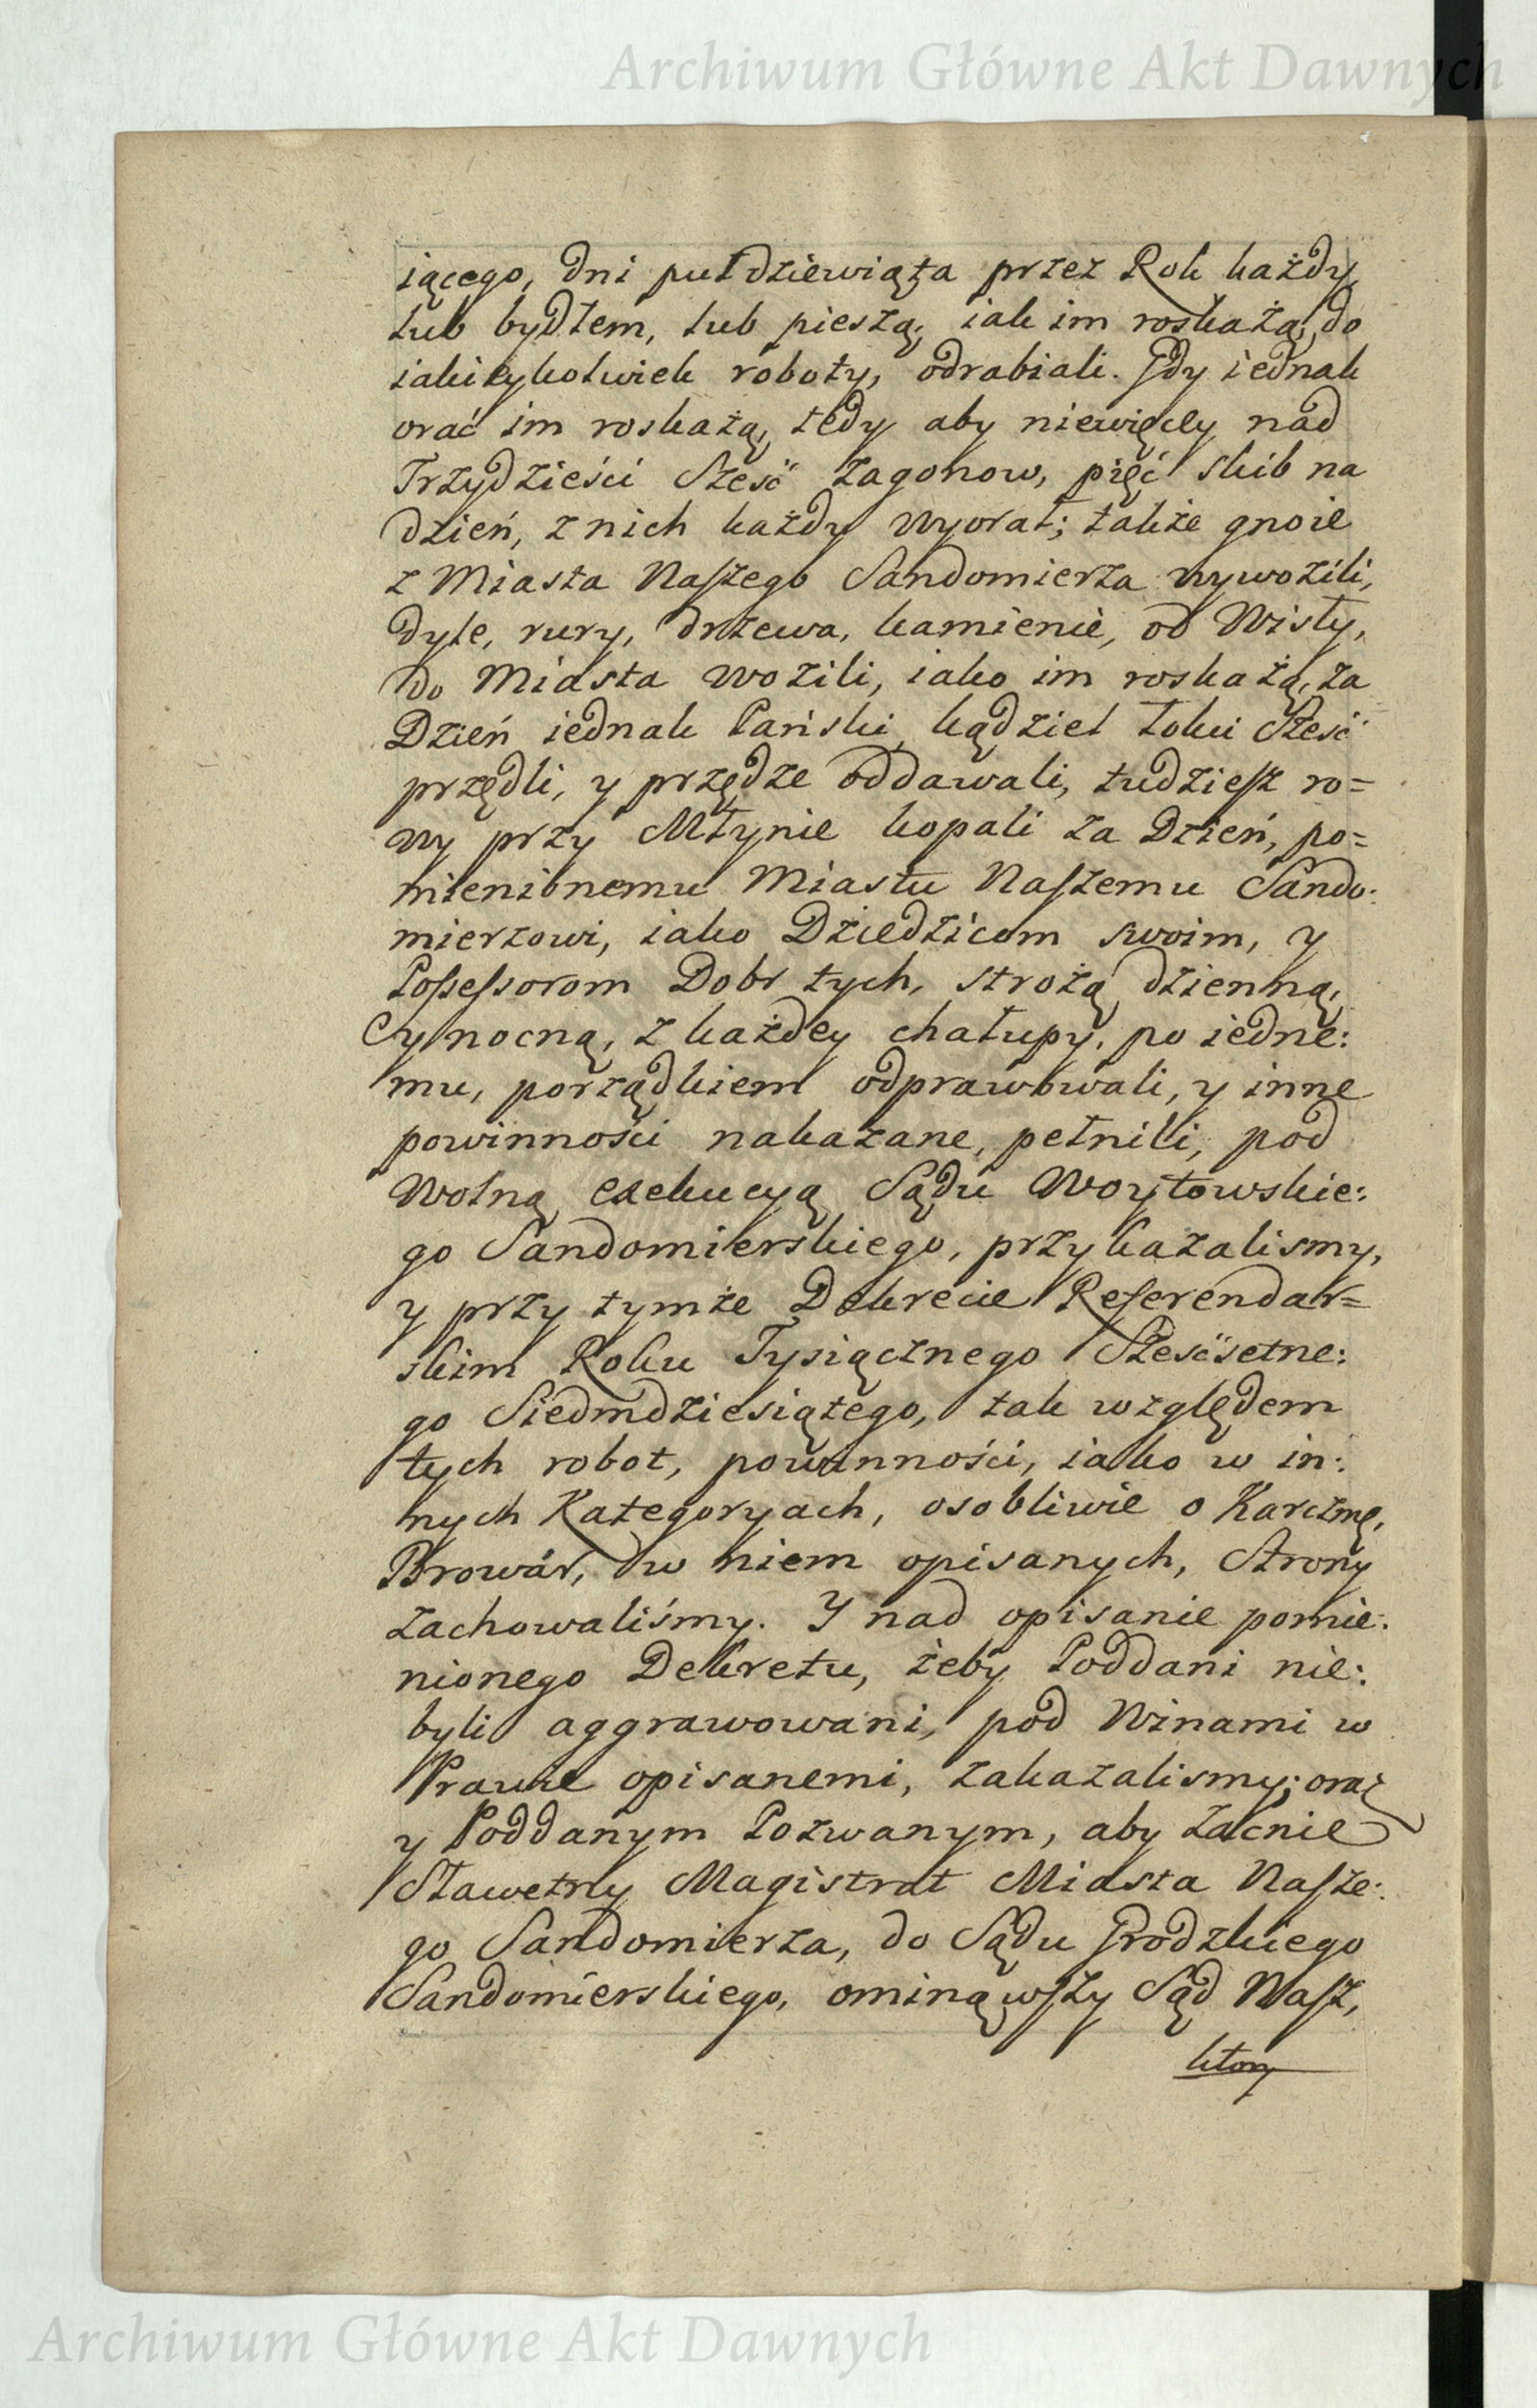 Archiwum Główne Akt Dawnych
iącego, dni puł dziewiąta przez Rok każdy,
lub bydłem, lub pieszą, iak im roskażą, do
iakieykolwiek roboty, odrabiali. Gdy iednak
orać im roskażą, tedy aby niewięcey nad
Trzydzieści Sześć zagonow, pięć skib na
dzień, z nich każdy wyorał; także gnoie
z Miasta Naszego Sandomierza wywozili,
dyle, rury, drzewa, kamienie, od Wisły,
do Miasta wozili, iako im roskażą, za
Dzień iednak Pański, kądziel łokci Sześć
przędli, y przędze oddawali, tudziesz ro=
wy przy Młynie kopali za Dzień, po=
mienionemu Miastu Naszemu Sando:
mierzowi, iako Dziedzicom swoim, y
Possessorom Dobr tych, strożą dzienną,
y nocną, z każdey chałupy, po iedne:
mu, porządkiem odprawowali, y inne
powinności nakazane, pełnili, pod
Wolną exekucyą Sądu Woytowskie:
go Sandomierskiego, przykazalismy,
y przy tymże Dekrecie Referendar=
skim Roku Tysiącznego Sześćsetne:
go Siedmdziesiątego, tak względem
tych robot, powinności, iako w in:
nych Kategoryach, osobliwie o Karczmę,
Browár, w niem opisanych, Strony
zachowaliśmy. Y nad opisanie pomie:
nionego Dekretu, żeby Poddani nie:
byli aggrawowani, pod Winami w
Prawie opisanemi, zakazalismy; oraz
y Poddanym Pozwanym, aby zacnie
Sławetny Magistrat Miasta Nasze:
go Sandomierza, do Sądu Grodzkiego
Sandomierskiego, ominąwszy Sąd Nasz,
ktory
Archiwum Główne Akt Dawnych